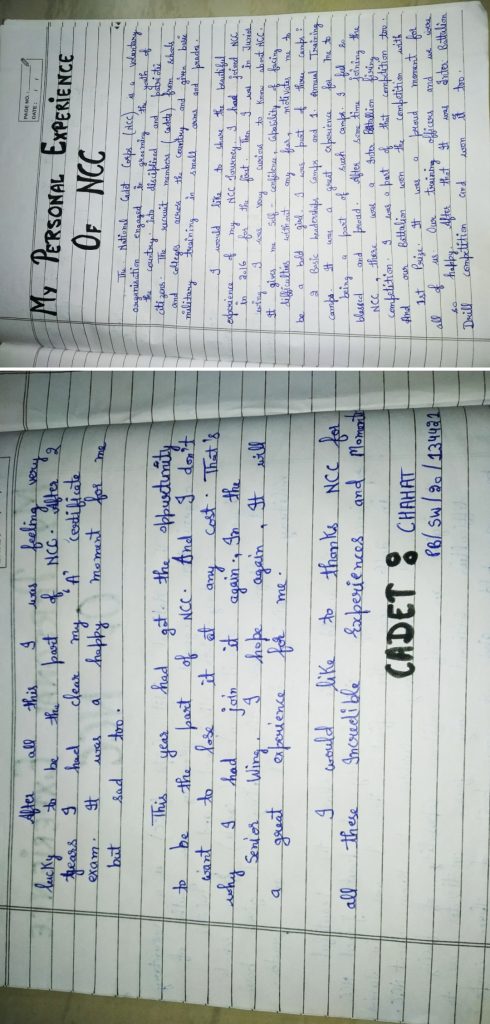 PAGE NO.:
DATE: / /
MY PERSONAL EXPERIENCE
OF NCC
"The National Cadet Corps (NCC) is a voluntary
organisation engaged in grooming the youth of
the country into disciplined and patriotic
citizens. The recruit members (cadets) from schools
and colleges across the country and given basic
military training in small arms and parades.
I would like to share the beautiful
experience of my NCC Journey. I had joined NCC
in 2016 for the first. Then I was in Junior
wing. I was very curious to know about NCC.
It gives me self confidence, capability of facing
difficulties without any fear, motivates me to
be a bold girl. I was part of three camps:
2 Basic leadership camps and 1 Annual Training
camp. It was a great experience for me to
being a part of such camps. I feel so
blessed and proud. After some time joining the
NCC, there was a Inter Battalion
competition. I was a part of that competition too.
And our Battalion won the competition with
1st Prize. It was a proud moment for
all of us. Our training officers and we were
so happy. After that It was Inter Battalion
Drill competition and won it too.
After all this I was feeling very
lucky to be the part of NCC. After 2
years I had clear my 'A' certificate
exam. It was a happy moment for me
but sad too.
This year had got the oppurtunity
to be the part of NCC. And I don't
want to lose it at any cost. That's
why I had join it again, In the
Senior Wing. I hope again, It will
a great experience for me.
I would like to thanks NCC for
all these Incredible Experiences and Moment
CADET : CHAHAT
PB/SW/20/134421